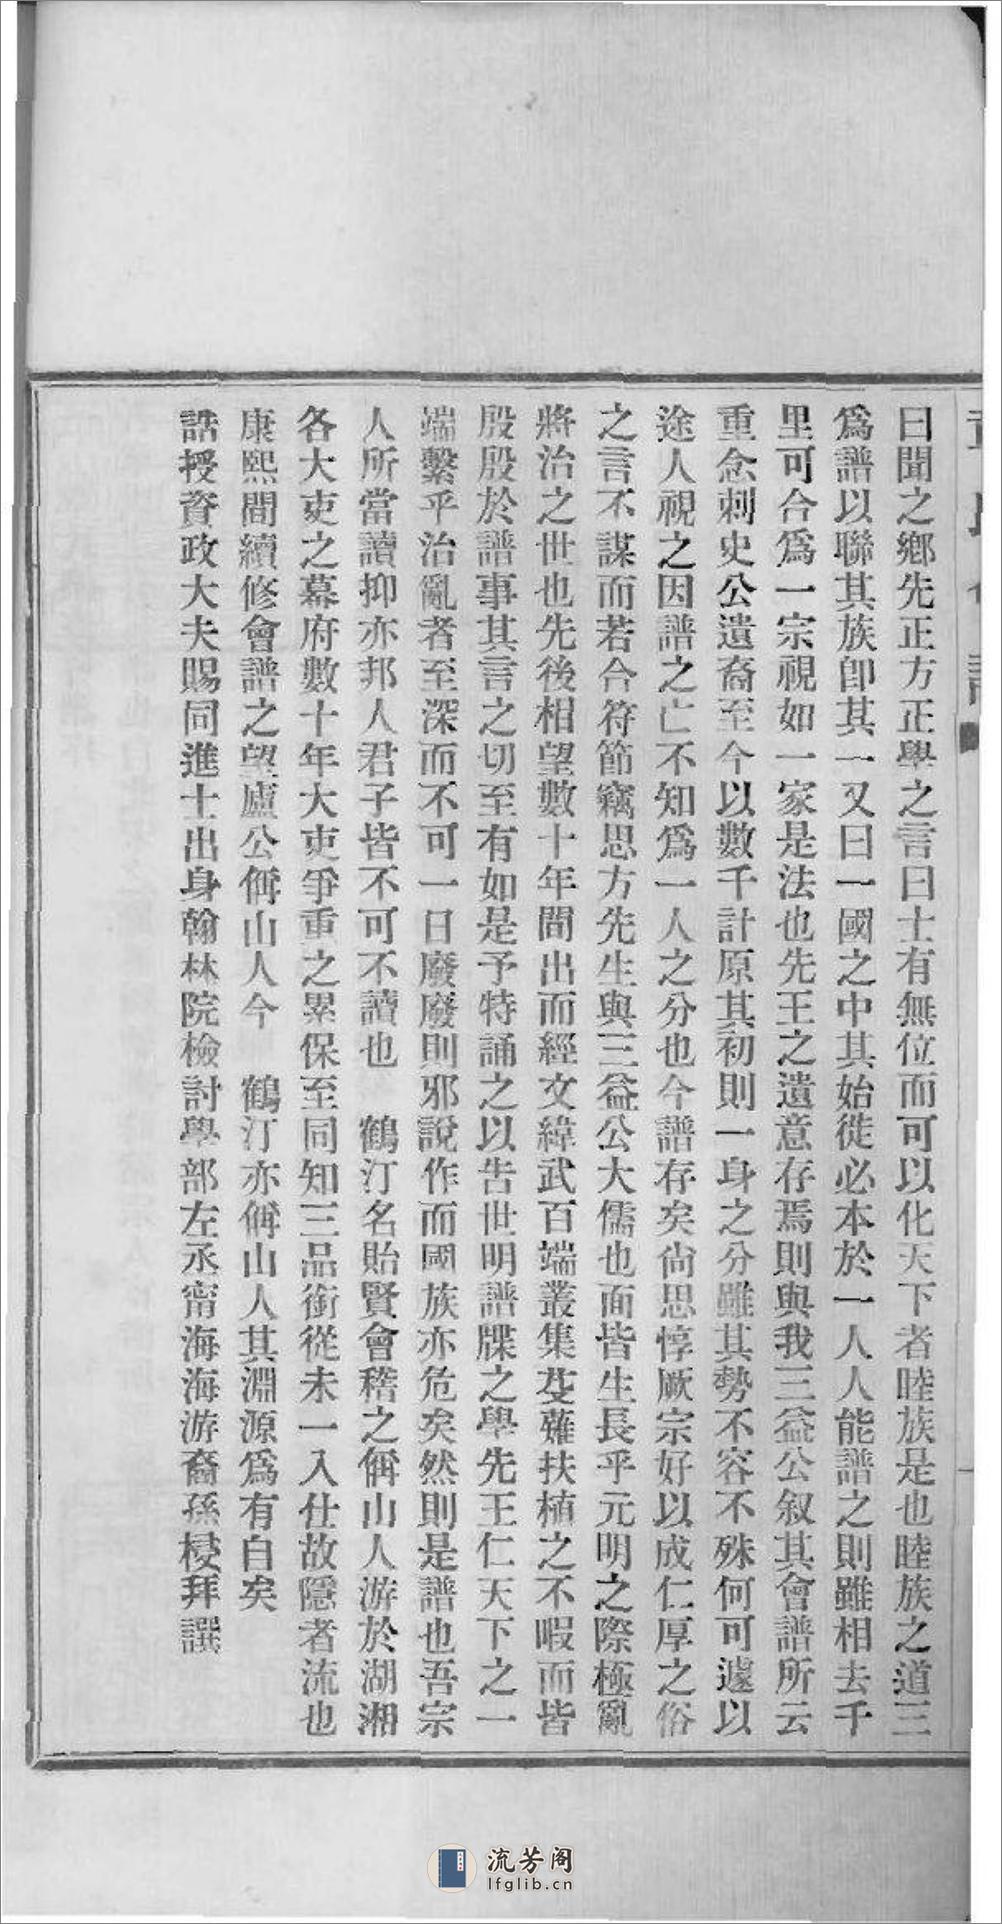 曰聞之鄉先正方正學之言曰士有無位而可以化天下者睦族是也睦族之道三
爲譜以聯其族卽其一又曰一國之中其始徙必本於一人人能譜之則雖相去千
里可合爲一宗視如一家是法也先王之遺意存焉則與我三益公叙其會譜所云
重念刺史公遺裔至今以數千計原其初則一身之分雖其勢不容不殊何可遽以
途人視之因譜之亡不知爲一人之分也今譜存矣尙思惇厥宗好以成仁厚之俗
之言不謀而若合符節竊思方先生與三益公大儒也面皆生長乎元明之際極亂
將治之世也先後相望數十年間出而經文緯武百端叢集芟薙扶植之不暇而皆
殷殷於譜事其言之切至有如是予特誦之以告世明譜牒之學先王仁天下之一
端繫乎治亂者至深而不可一日廢廢則邪說作而國族亦危矣然則是譜也吾宗
人所當讀抑亦邦人君子皆不可不讀也　鶴汀名貽賢會稽之偁山人游於湖湘
各大吏之幕府數十年大吏爭重之累保至同知三品銜從未一入仕故隱者流也
康熙間續修會譜之望廬公偁山人今　鶴汀亦偁山人其淵源爲有自矣
誥授資政大夫賜同進士出身翰林院檢討學部左丞甯海海游裔孫梫拜譔
流芳阁
lfglib.cn